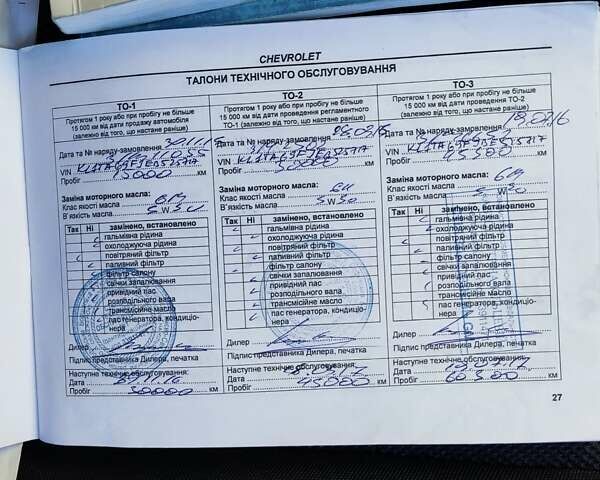 CHEVROLET
ТАЛОНИ ТЕХНІЧНОГО ОБСЛУГОВУВАННЯ
ТО-1
Протягом 1 року або при пробігу не більше
15 000 км від дати продажу автомобіля
(залежно від того, що настане раніше)
Дата та № наряду-замовлення
VIN
Пробіг 15000 км
Заміна моторного масла:
Клас якості масла
В`язкість масла 5 W 30
Так Ні замінено, встановлено
гальмівна рідина
охолоджуюча рідина
повітряний фільтр
паливний фільтр
фільтр салону
свічки запалювання
привідний пас
розподільного вала
трансмісійне масло
пас генератора, кондиціо-
нера
Дилер
Підпис представника Дилера, печатка
Наступне технічне обслуговування:
Дата
Пробіг 30000 км
ТО-2
Протягом 1 року або при пробігу не більше
15 000 км від дати проведення регламентного
ТО-1 (залежно від того, що настане раніше)
Дата та № наряду-замовлення
VIN
Пробіг 30000 км
Заміна моторного масла:
Клас якості масла
В`язкість масла 5 W 30
Так Ні замінено, встановлено
гальмівна рідина
охолоджуюча рідина
повітряний фільтр
паливний фільтр
фільтр салону
свічки запалювання
привідний пас
розподільного вала
трансмісійне масло
пас генератора, кондиціо-
нера
Дилер
Підпис представника Дилера, печатка
Наступне технічне обслуговування:
Дата
Пробіг 45000 км
ТО-3
Протягом 1 року або при пробігу не більше
15 000 км від дати проведення ТО-2
(залежно від того, що настане раніше)
Дата та № наряду-замовлення
VIN
Пробіг 45300 км
Заміна моторного масла:
Клас якості масла
В`язкість масла 5 W 30
Так Ні замінено, встановлено
гальмівна рідина
охолоджуюча рідина
повітряний фільтр
паливний фільтр
фільтр салону
свічки запалювання
привідний пас
розподільного вала
трансмісійне масло
пас генератора, кондиціо-
нера
Дилер
Підпис представника Дилера, печатка
Наступне технічне обслуговування:
Дата
Пробіг 60300 км
27